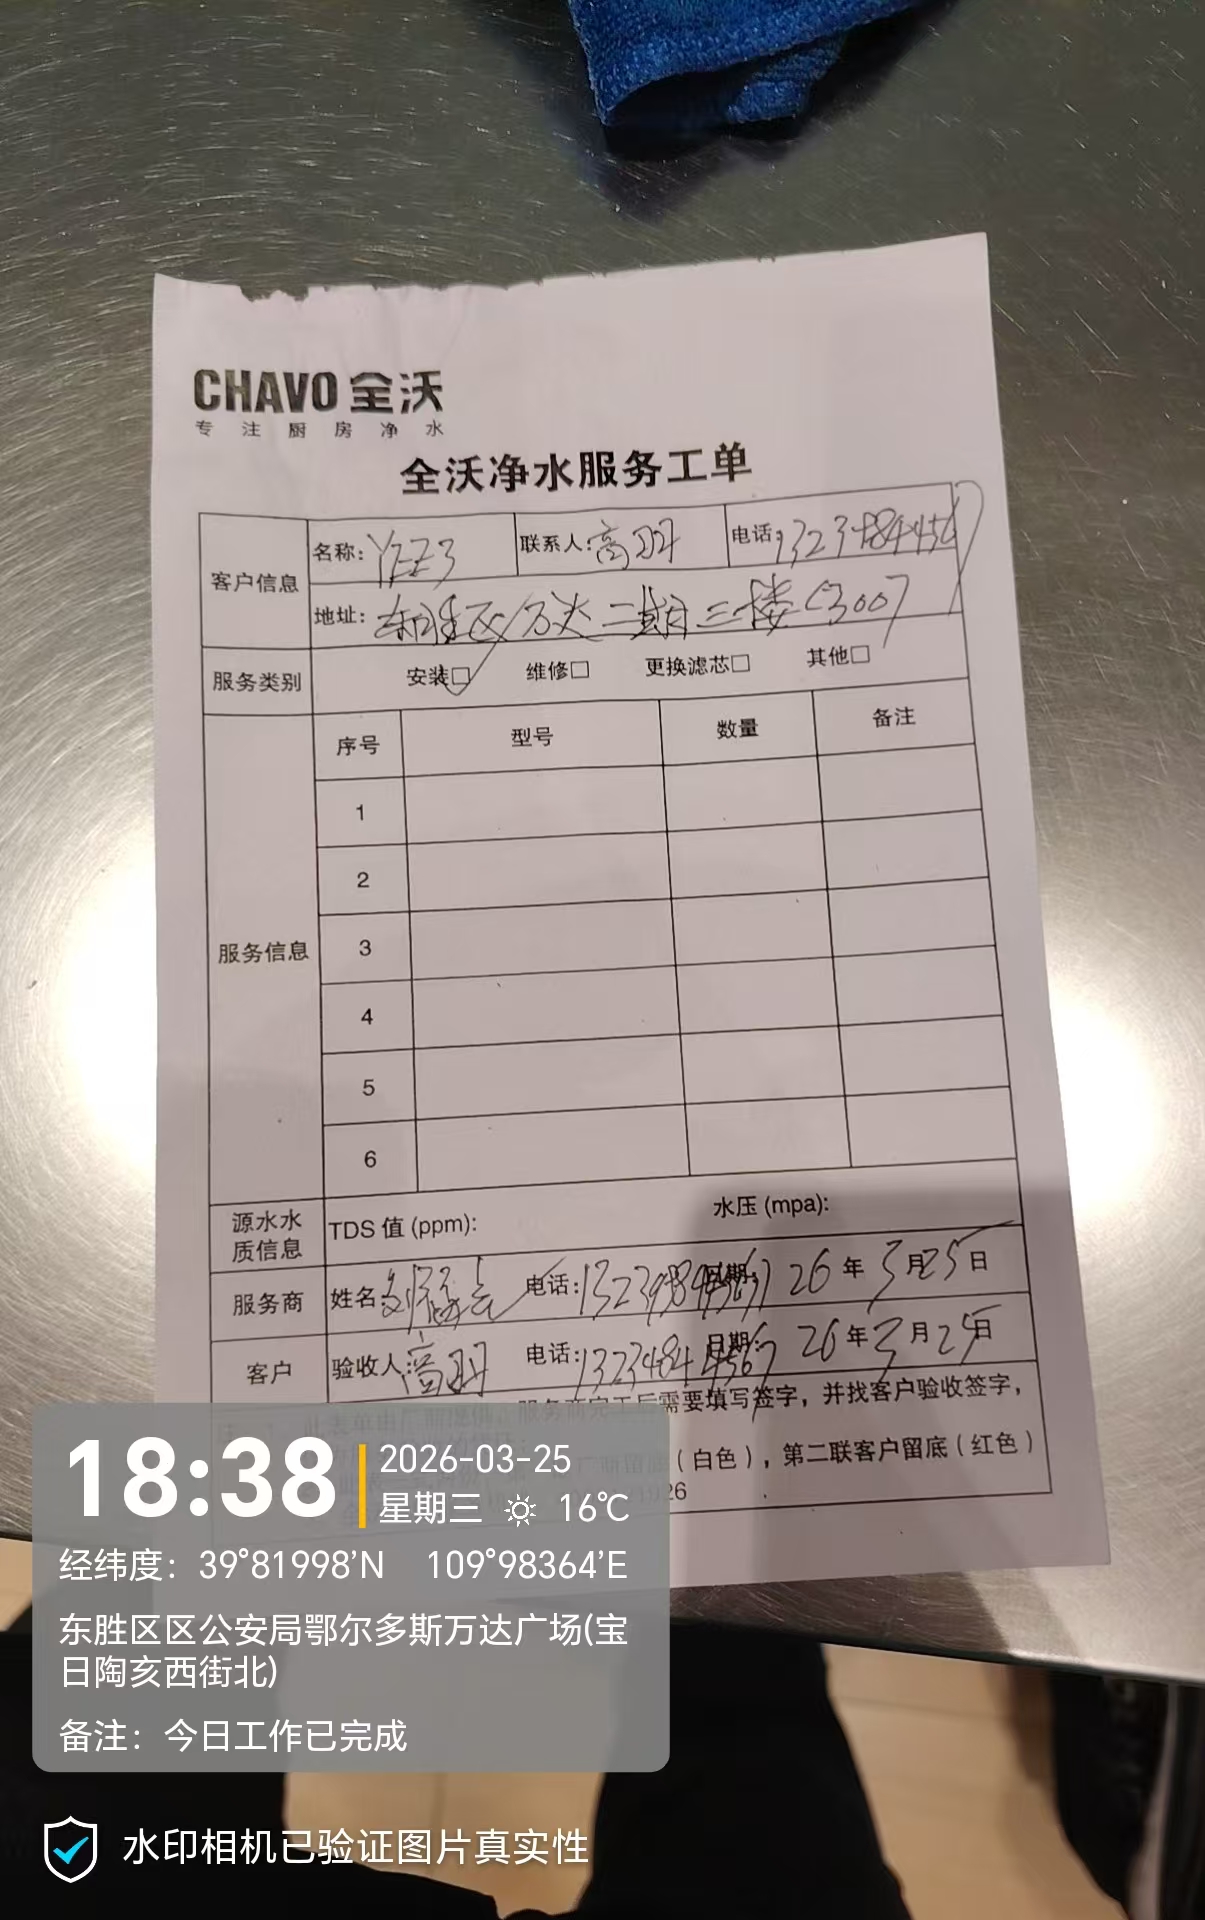 CHAVO 全沃
专注厨房净水
全沃净水服务工单
客户信息 名称: 联系人: 高羽 电话:
地址: 东胜区万达二期三楼 3007
服务类别 安装☑ 维修□ 更换滤芯□ 其他□
服务信息 序号 型号 数量 备注
1
2
3
4
5
6
源水水质信息 TDS 值 (ppm): 水压 (mpa):
服务商 姓名: 电话: 日期: 26 年 3 月 25 日
客户 验收人: 高羽 电话: 13234844567 日期: 26 年 3 月 25 日
服务商完工后需要填写签字，并找客户验收签字，
（白色），第二联客户留底（红色）
26
18:38
2026-03-25
星期三 16℃
经纬度：39°81998'N 109°98364'E
东胜区区公安局鄂尔多斯万达广场(宝
日陶亥西街北)
备注：今日工作已完成
水印相机已验证图片真实性